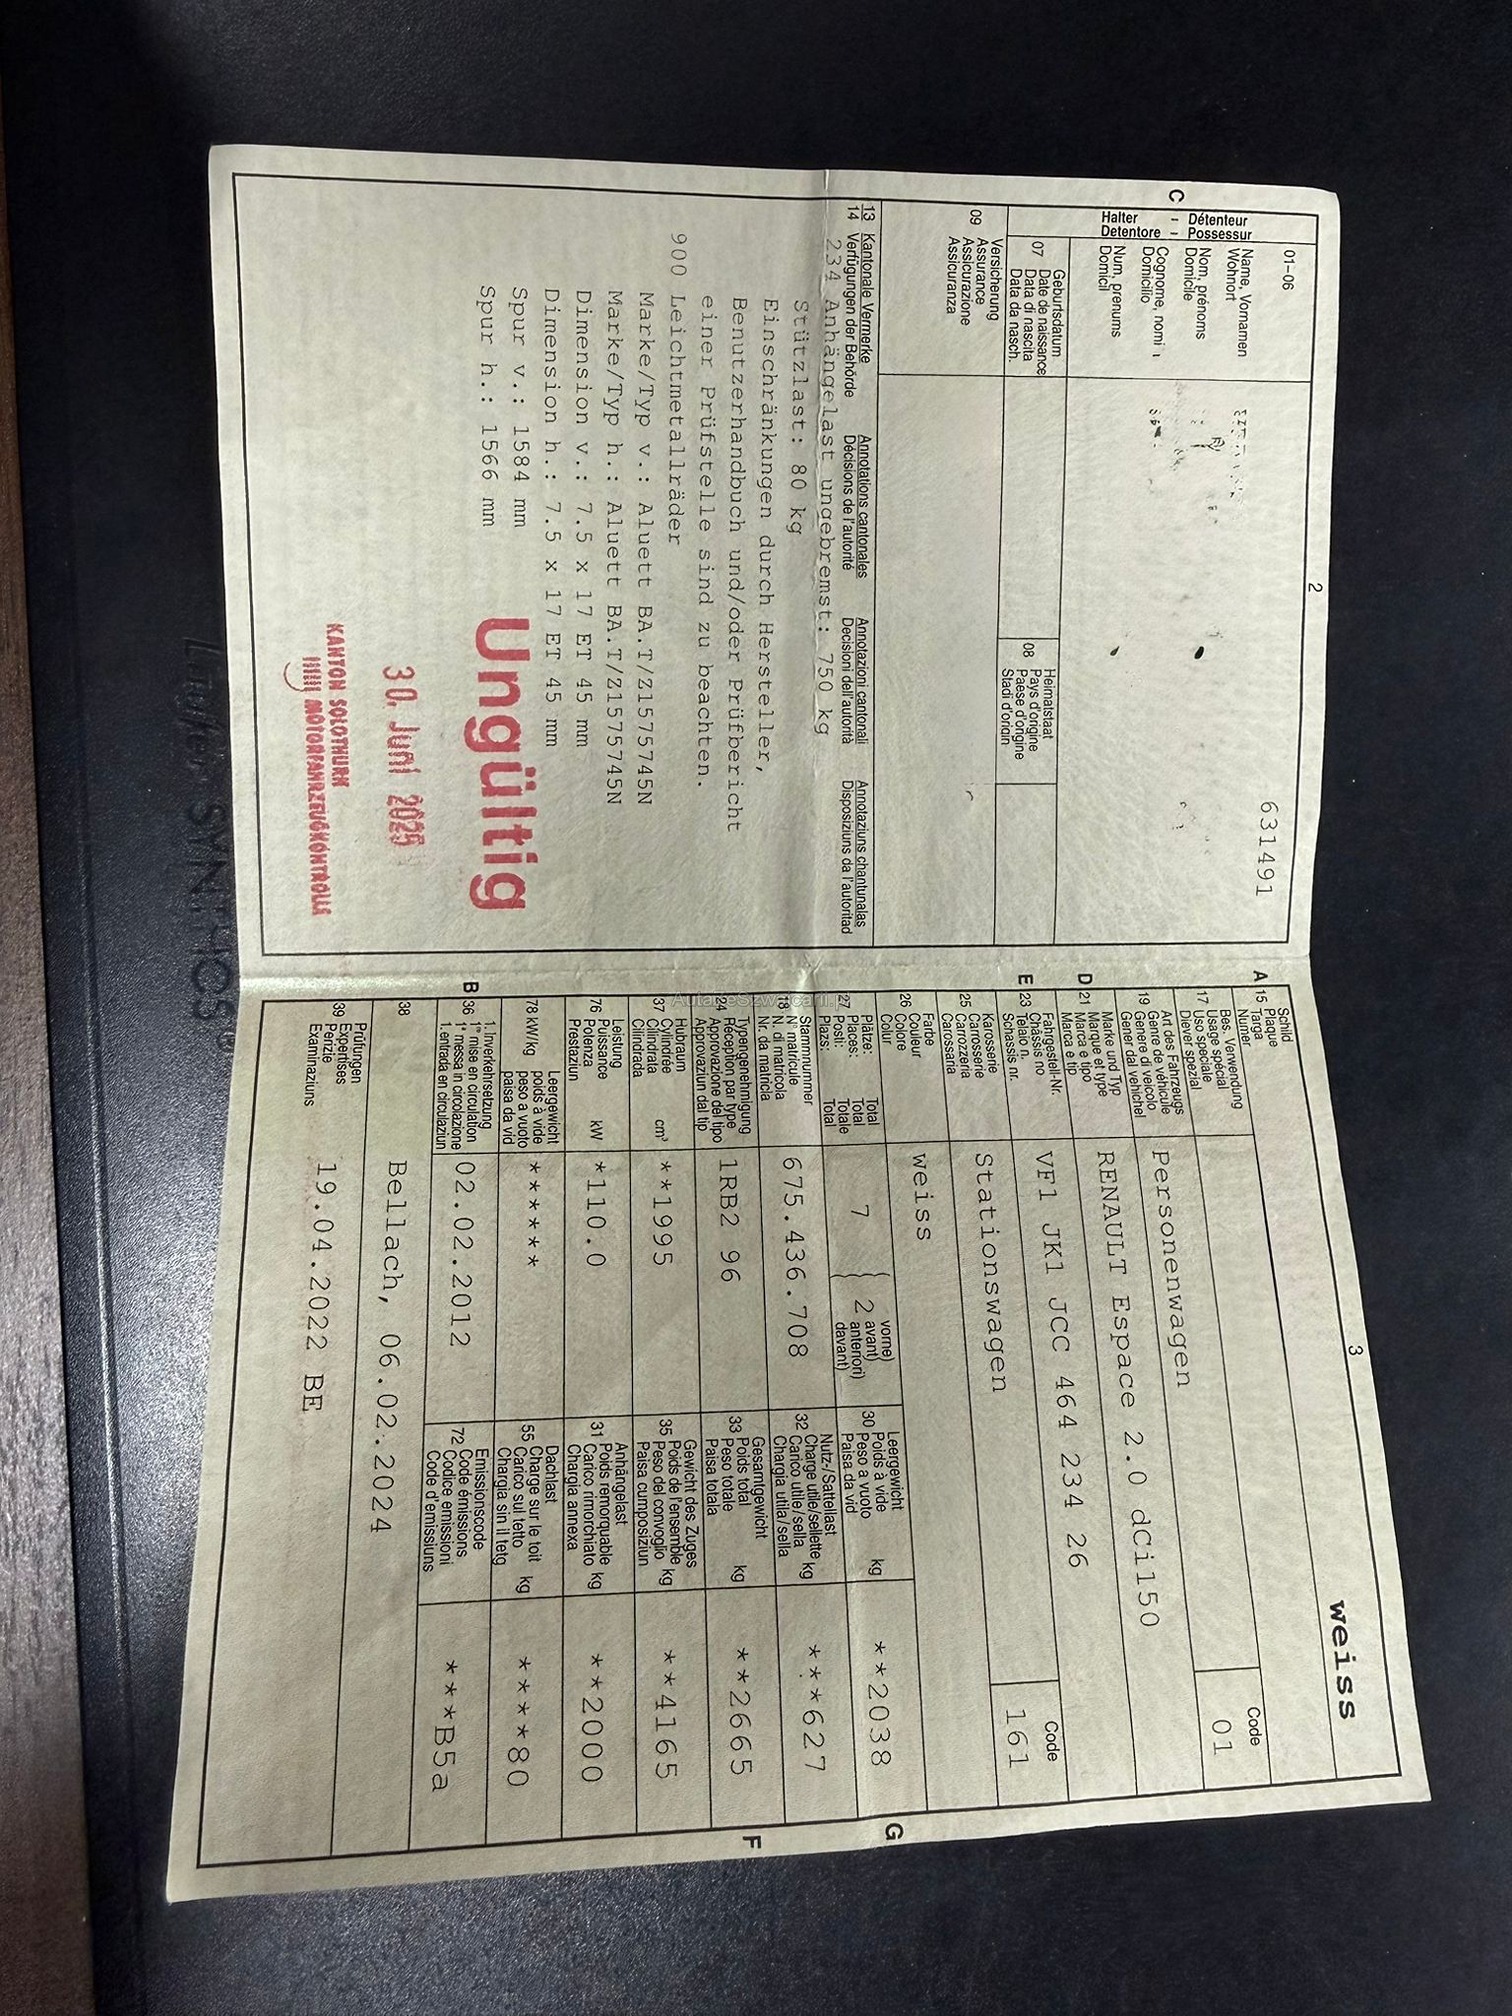 2
631491
01–06
Name, Vornamen
Wohnort
C
Détenteur
Possessur
Nom, prénoms
Domicile
Cognome, nomi
Domicilio
Halter
Detentore
Num, prenums
Domicil
07
Geburtsdatum
Date de naissance
Data di nascita
Data da nasch.
08
Heimatstaat
Pays d'origine
Paese d'origine
Stadi d'origin
09
Versicherung
Assurance
Assicurazione
Assicuranza
13 Kantonale Vermerke Annotations cantonales Annotazioni cantonali Annotaziuns chantunalas
14 Verfügungen der Behörde Décisions de l'autorité Decisioni dell'autorità Disposiziuns da l'autoritad
234 Anhängelast ungebremst: 750 kg
Stützlast: 80 kg
Einschränkungen durch Hersteller,
Benutzerhandbuch und/oder Prüfbericht
einer Prüfstelle sind zu beachten.
900 Leichtmetallräder
Marke/Typ v.: Aluett BA.T/Z1575745N
Marke/Typ h.: Aluett BA.T/Z1575745N
Dimension v.: 7.5 x 17 ET 45 mm
Dimension h.: 7.5 x 17 ET 45 mm
Spur v.: 1584 mm
Spur h.: 1566 mm
Ungültig
30. Juni 2025
KANTON SOLOTHURN
MOTORFAHRZEUGKONTROLLE
3
weiss
A 15
Schild
Plaque
Targa
Numer
17
Bes. Verwendung
Usage spécial
Uso speciale
Diever spezial
Code
01
19
Art des Fahrzeugs
Genre de véhicule
Genere di veicolo
Gener dal vehichel
Personenwagen
D 21
Marke und Typ
Marque et type
Marca e tipo
Marca e tip
RENAULT Espace 2.0 dCi150
E 23
Fahrgestell-Nr.
Châssis no
Telaio n.
Schassis nr.
VF1 JK1 JCC 464 234 26
Code
161
25
Karosserie
Carrosserie
Carrozzeria
Carrossaria
Stationswagen
26
Farbe
Couleur
Colore
Colur
weiss
27
Plätze: Total
Places: Total
Posti: Totale
Plazs: Total
7
2
vorne)
avant)
anteriori)
davant)
30
Leergewicht
Poids à vide
Peso a vuoto
Paisa da vid
kg
**2038
G
18
Stammnummer
N° matricule
N. di matricola
Nr. da matricla
675.436.708
32
Nutz-/Sattellast
Charge utile/sellette
Carico utile/sella
Chargia utila/sella
kg
***627
24
Typengenehmigung
Réception par type
Approvazione del tipo
Approvaziun dal tip
1RB2 96
33
Gesamtgewicht
Poids total
Peso totale
Paisa totala
kg
**2665
F
37
Hubraum
Cylindrée
Cilindrata
Cilindrada
cm³
**1995
35
Gewicht des Zuges
Poids de l'ensemble
Peso del convoglio
Paisa cumposiziun
kg
**4165
76
Leistung
Puissance
Potenza
Prestaziun
kW
*110.0
31
Anhängelast
Poids remorquable
Carico rimorchiato
Chargia annexa
kg
**2000
78 kW/kg
Leergewicht
poids à vide
peso a vuoto
paisa da vid
*****
55
Dachlast
Charge sur le toit
Carico sul tetto
Chargia sin il tetg
kg
****80
B 36
1. Inverkehrsetzung
1re mise en circulation
1a messa in circolazione
1. entrada en circulaziun
02.02.2012
72
Emissionscode
Code émissions
Codice emissioni
Code d'emissiuns
***B5a
38
Bellach, 06.02.2024
39
Prüfungen
Expertises
Perizie
Examinaziuns
19.04.2022 BE